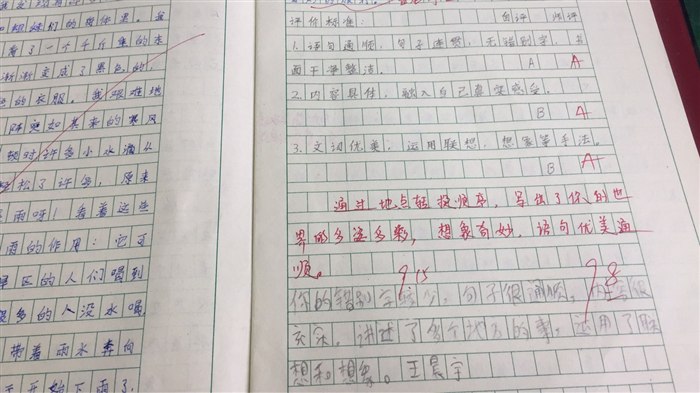 和细细的
看了一个千斤重的
渐渐变成了黑色的,
色的衣服。我艰难地
阵突如其来的暴风
顿时许多小水滴从
轻松了许多,原来
雨呀!看着这些
雨的作用:它可
旱区的人们喝到
很多的人没水喝
带着雨水奔向
天开始下雨了,
评价标准: 自评 师评
1.语句通顺,句子连贯,无错别字,书
面干净整洁。 A A
2.内容具体,融入自己真实感受。
B A
3.文词优美,运用联想,想象等手法。
B A
通过地点转换顺序,写出了你的世
界的多姿多彩,想象有妙,语句优美通
顺。
9.15 98
你的错别字较少,句子很通顺,内容很
充实。讲述了多个地方的事,运用了联
想和想象。王晨宇